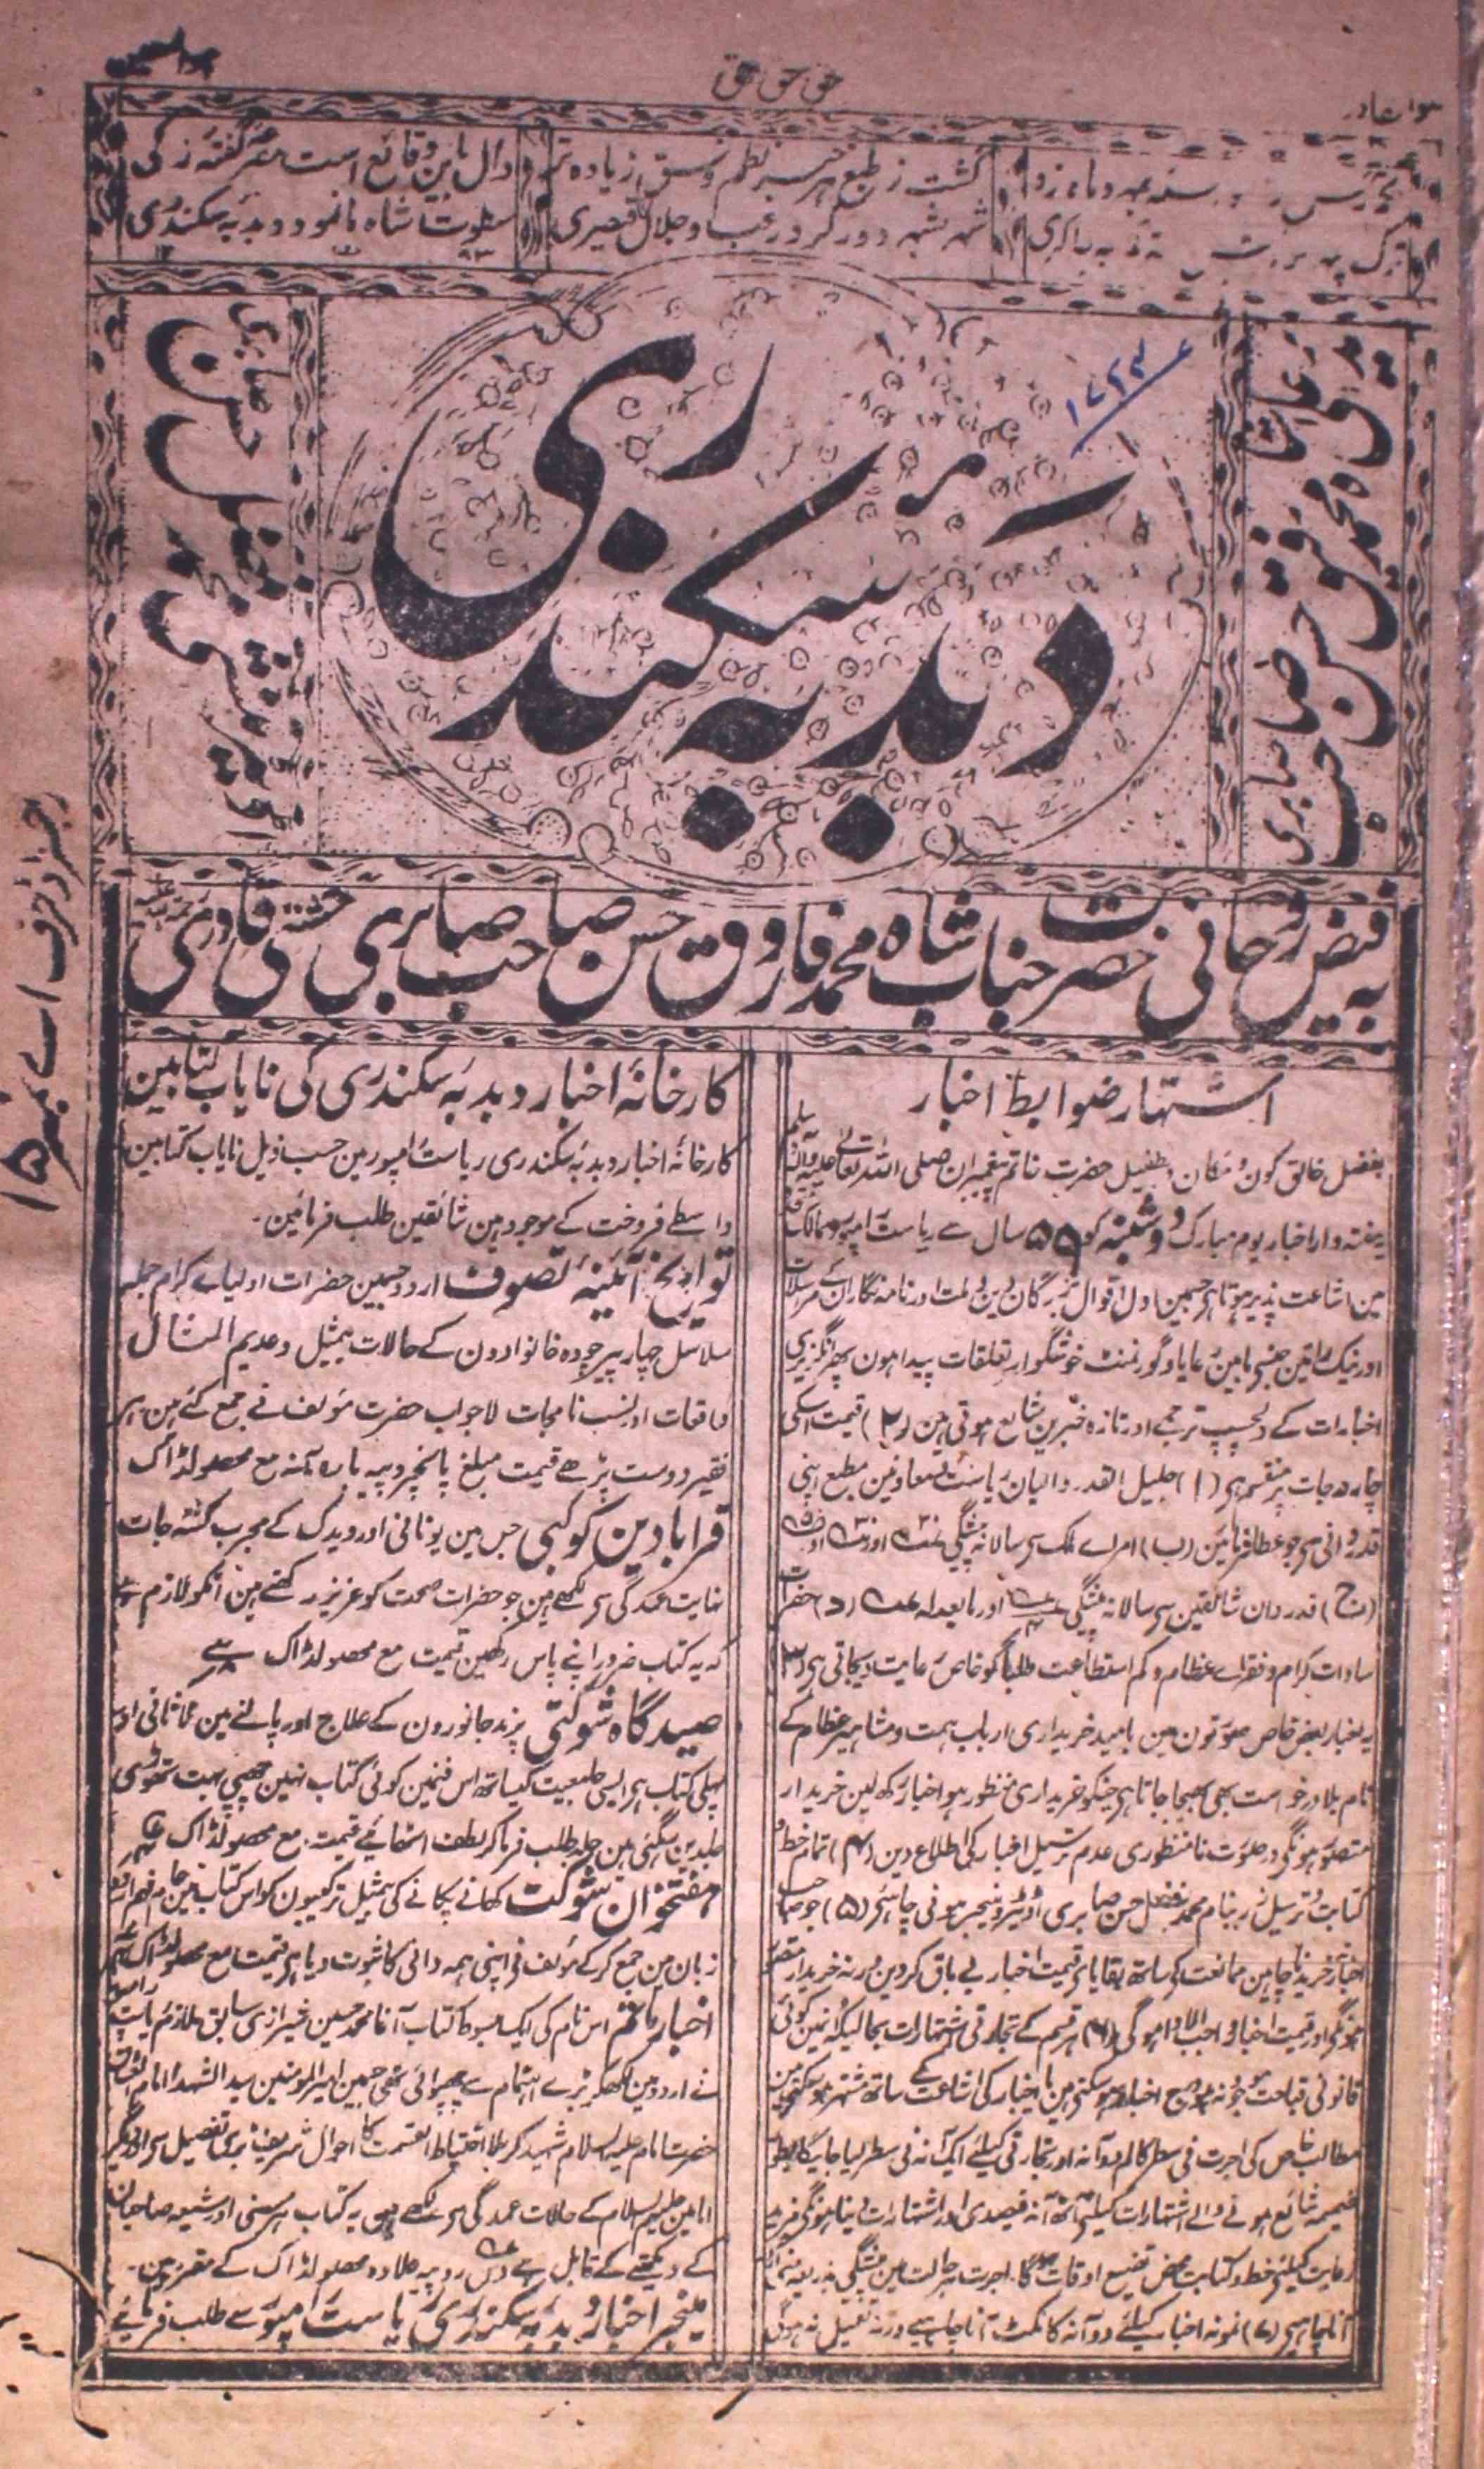 حق حق حق
گشت ز طبع ہر خبر نظم و نسق زیادہ تر
دال باین وقائع است مصرعہ گفتہ زکی
شہر بشہر دور کرد رعب و جلال قیصری
سطوت شاہ ما نمود دبدبہ سکندری
۱۷۶۲
دبدبہ سکندری
محمد فاروق حسن صاحب صابری
رجسٹرڈ حرف اے نمبر ۱۵
بہ فیض روحانی حضرت جناب شاہ محمد فاروق حسن صاحب صابری چشتی قادری
اشتہار ضوابط اخبار
بفضل خالق کون و مکان و بطفیل حضرت خاتم پیغمبران صلی اللہ تعالے علیہ وآلہ وسلم
یہ ہفتہ وار اخبار یوم مبارک دوشنبہ کو ۵۹ سال سے ریاست رامپور و ممالک
مین اشاعت پذیر ہوتا ہے جسمین اول اقوال بزرگان دین و ملت اور نامہ نگاران کے مراسلات
اور نیک رائین جنسے مابین رعایا و گورنمنٹ خوشگوار تعلقات پیدا ہون پھر انگریزی
اخبارات کے دلچسپ ترجمے اور تازہ خبرین شایع ہوتی ہین (۲) قیمت اسکی
چار درجات پر منقسم ہے (ا) جلیل القدر والیان ریاست و معاونین مطبع اپنی
قدردانی سے جو عطا فرمائین (ب) امراے ملک سے سالانہ پیشگی
(ج) قدردان شائقین سے سالانہ پیشگی اور مابعد (د) حضرات
سادات کرام و فقراے عظام و کم استطاعت طلبا کو خاص رعایت دیجاتی ہے (۳)
یہ اخبار بعض خاص صورتون مین بامید خریداری ارباب ہمت و مشاہیر عظام کے
نام بلا درخواست بھی بھیجا جاتا ہے جنکو خریداری منظور ہو اخبار رکھ لین خریدار
متصور ہونگے در صورت نامنظوری عدم ترسیل اخبار کی اطلاع دین (۴) تمام خط
کتابت و ترسیل زر بنام محمد فضل حسن صابری اڈیٹر و منیجر ہونی چاہیے (۵) جو صاحب
اخبار نہ خریدنا چاہین ممانعت کے ساتھ بقایا قیمت اخبار بے باق کردین ورنہ خریدار متصور
ہونگے اور قیمت اخبار واجب الادا ہوگی (۶) ہر قسم کے تجارتی اشتہارات بحالیکہ انمین کوئی
قانونی قباحت نہو درج اخبار ہوسکتے ہین یا اخبار کی اشاعت کے ساتھ مشتہر ہوسکتے ہین
مطالب خاص کی اجرت فی سطر کالم دو آنہ اور تجارتی کیلئے ایک آنہ فی سطر لیا جائیگا بطور
ضمیمہ شائع ہونے والے اشتہارات کیلئے آٹھ آنہ فیصدی اور اشتہارات دینا ہونگے مزید
رعایت کیلئے خط و کتابت محض تضیع اوقات ہوگا۔ اجرت ہر حالت مین پیشگی بذریعہ
آنا چاہیے (۷) نمونہ اخبار کیلئے دو آنہ کا ٹکٹ آنا چاہیے ورنہ تعمیل نہ ہوگی
کارخانۂ اخبار دبدبۂ سکندری کی نایاب کتابین
کارخانۂ اخبار دبدبۂ سکندری ریاست رامپور مین حسب ذیل نایاب کتابین
واسطے فروخت کے موجود ہین شائقین طلب فرمائین۔
تواریخ آئینہ تصوف اردو جسمین حضرات اولیاے کرام جملہ
سلاسل چار پیر چودہ خانوادون کے حالات بیمثیل و عدیم المثال
واقعات اور نسب نامجات لاجواب حضرت مؤلف نے جمع کئے ہین ہر
فقیر دوست پڑھے قیمت مبلغ پانچروپیہ بارہ آنہ مع محصولڈاک
قرابادین کوکبی جس مین یونانی اور ویدک کے مجرب کشتہ جات
نہایت عمدگی سے لکھے ہین جو حضرات صحت کو عزیز رکھتے ہین انکو لازم ہے
کہ یہ کتاب ضرور اپنے پاس رکھین قیمت مع محصولڈاک
صیدگاہ شوکتی پرند جانورون کے علاج اور پالنے مین لاثانی اور
پہلی کتاب ہے ایسی جامعیت کیساتھ اس فنمین کوئی کتاب نہین چھپی بہت تھوڑی
جلدین رہگئی ہین جلد طلب فرماکر لطف اٹھائیے قیمت مع محصولڈاک
ہفتخوان شوکت کھانے پکانے کی بیمثیل ترکیبون کو اس کتاب مین عام فہم اردو
زبان مین جمع کرکے مؤلف نے اپنی ہمہ دانی کا ثبوت دیا ہے قیمت مع محصولڈاک
اخبار ماتم اس نام کی ایک مبسوط کتاب آغا محمد حسین شیرازی سابق ملازم ریاست رامپور
نے اردو مین لکھکر بڑے اہتمام سے چھپوائی تھی جسمین امیر المومنین سید الشہدا امام
حضرت امام علیہ السلام شہید کربلا کا احوال شریف بڑی تفصیل سے اور دیگر
امامین علیہم السلام کے حالات عمدگی سے لکھے ہین یہ کتاب ہر سنی اور شیعہ صاحبان
کے دیکھنے کے قابل ہے دس روپیہ علاوہ محصولڈاک کے مقرر ہین۔
منیجر اخبار دبدبۂ سکندری ریاست رامپور سے طلب فرمائیے